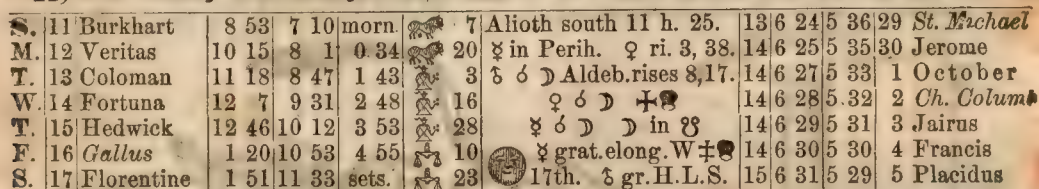 S. 11 Burkhart 8 53 7 10 morn. 7 Alioth south 11 h. 25. 13 6 24 5 36 29 St. Michael
M. 12 Veritas 10 15 8 1 0 34 20 ☿ in Perih. ♀ ri. 3, 38. 14 6 25 5 35 30 Jerome
T. 13 Coloman 11 18 8 47 1 43 3 ♄ ☌ ☽ Aldeb.rises 8,17. 14 6 27 5 33 1 October
W. 14 Fortuna 12 7 9 31 2 48 16 ♀ ☌ ☽ 14 6 28 5.32 2 Ch. Columb
T. 15 Hedwick 12 46 10 12 3 53 28 ☿ ☌ ☽ ☽ in ☋ 14 6 29 5 31 3 Jairus
F. 16 Gallus 1 20 10 53 4 55 10 ☿ grat.elong.W 14 6 30 5 30 4 Francis
S. 17 Florentine 1 51 11 33 sets. 23 17th. ♄ gr.H.L.S. 15 6 31 5 29 5 Placidus